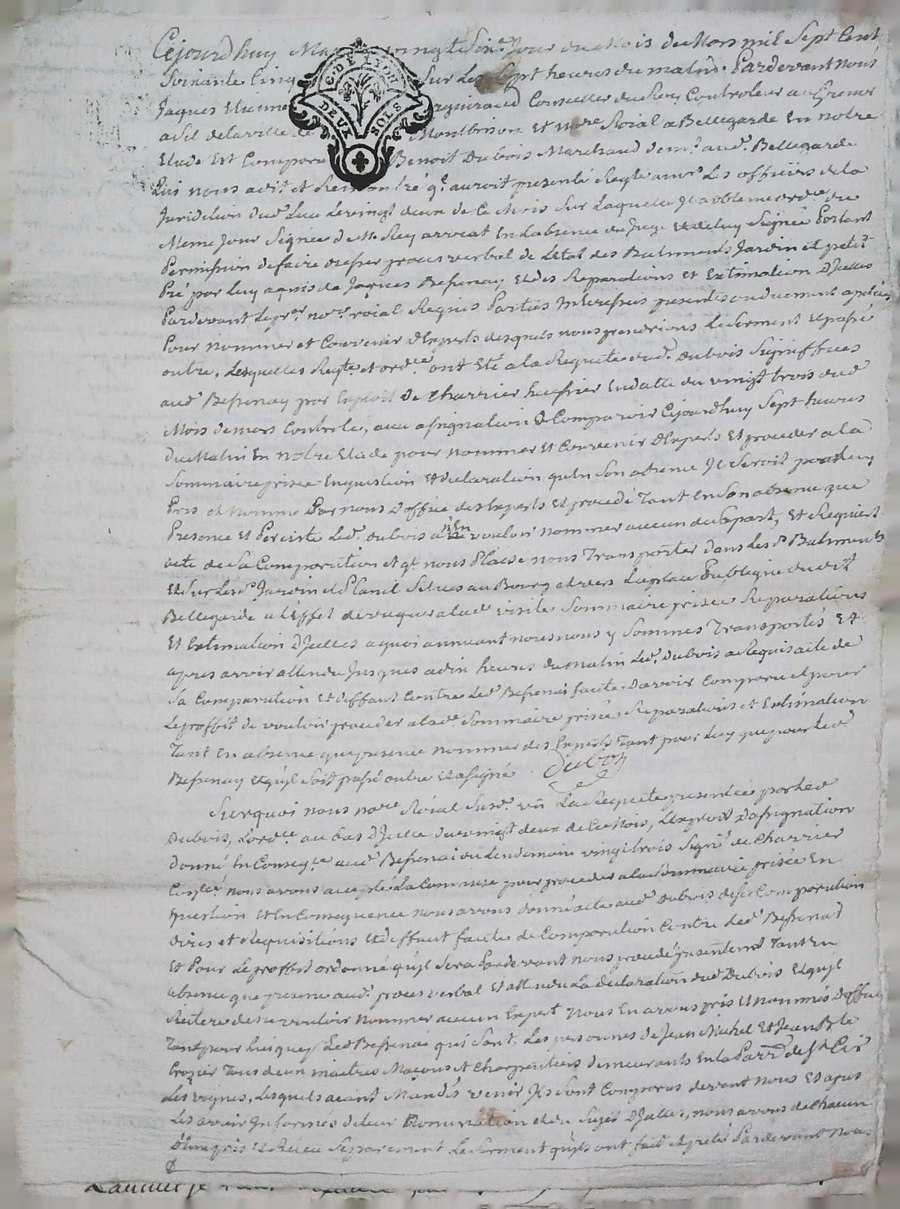 Cejourdhuy Ma vingt six.e Jour du Mois de Mars mil Sept Cent
Soixante Cinq Sur Les Sept heures du matin. Pardevant nous
Jaques Etienne Conseiller du Roy Controleur au Grenier
a Sel de la ville de Montbrison Et No.re Roial a Bellegarde En notre
Etude Est Comparu Benoit Dubois Marchand dem.t aud. Bellegarde
C. DE LYON
DEUX SOLS
Qui nous a dit et Remontré q.l auroit presenté Req.te a mrs Les officiers de la
Juridiction dud. Lieu Le vingt deux de Ce Mois Sur Laquelle Il a obtenu ord.ce du
Meme Jour Signée de M. Rey avocat En Labsence du Juge Et de luy Signée Portant
Permission de faire dresser proces verbal de Letat des Batiments Jardin et petit
Pré par Luy aquis de Jaques Bessenay Et des Reparations et Extimation DJcelles
Pardevant Le pr.er no.re roial Requis Parties Interessées presentes ou duement apellées
Pour Nommer et Convenir dExperts desquels nous prendrions Le Serment Et passé
outre, Lesquelles Req.te et ord.ce ont Eté a la Requete dud. Dubois Signiffiées
aud. Bessenay par Exploit de Charrier huissier En datte du vingt trois dud.
Mois de mars Controlé, avec assignation a Comparoir Cejourdhuy Sept heures
Du Matin En notre Etude pour nommer Et Convenir dExperts Et proceder a la
Sommaire prisée En question Et declaration quEn Son absence Il Seroit
Pris et Nommé Par nous Doffice des Experts Et procedé Tant En Son absence que
Presence Et Persiste Led. Dubois a nEn vouloir nommer aucun de Sa part, Et Requiert
acte de Sa Comparution Et q.l nous Plaise nous Transporter dans Les d. Batiments
Et Sur Les d. Jardin et Situés au Bourg et vers La place Publique dudit
Bellegarde a lEffet de vaquer a la d. visite Sommaire prisée Reparations
Et Extimation DJcelles a quoi annuant nous nous y Sommes Transportés Et
apres avoir attendu Jusques a dix heures du matin Led. Dubois a Requis acte de
Sa Comparution Et deffaut Contre Led. Bessenai faute Davoir Comparu Et pour
Le proffit de vouloir proceder a la d. Sommaire prisée Reparations et Extimation
Tant En absence que presence nommer des Experts Tant pour Luy que pour led.
Bessenay Et quil Soit passé outre Et a Signé Dubois
Surquoi nous no.re Roial Sus.d vu La Requete presentée par led.
Dubois, Lord.ce au bas DJcelle du vingt deux de Ce Mois, Lexploit Dassignation
Donné En Conseq.ce aud. Bessenai du Lendemain vingt trois Signé de Charrier
Contlé nous avons accepté La Commission pour proceder a la Sommaire prisée En
question Et En Consequence nous avons donné acte aud. Dubois de Ses Comparution
dires et Requisitions Et deffaut faute de Comparution Contre Led. Bessenai
Et Pour Le proffit ordonné quil Sera Pardevant nous procedé presentement Tant En
absence que presence aud. proces verbal Et attendu La declaration dud. Dubois Et quil
Reitere de ne vouloir Nommer aucun Expert Nous En avons pris Et Nommés Doffice
Tant pour Lui que p. Led. Bessenai qui Sont, Les personnes de Jean Michel Et Jean B.te
Crozier Tous deux maitres Maçons et Charpentiers demeurants En La Par.sse de S.t Cir
Les vignes, Lesquels aïant Mandés venir Ils Sont Comparus devant nous Et apres
Les avoir Informés de leur Nomination et du Sujet DJcelle, nous avons de chacun
Deux pris et Recu Separement Le Serment quils ont fait et preté Pardevant Nous